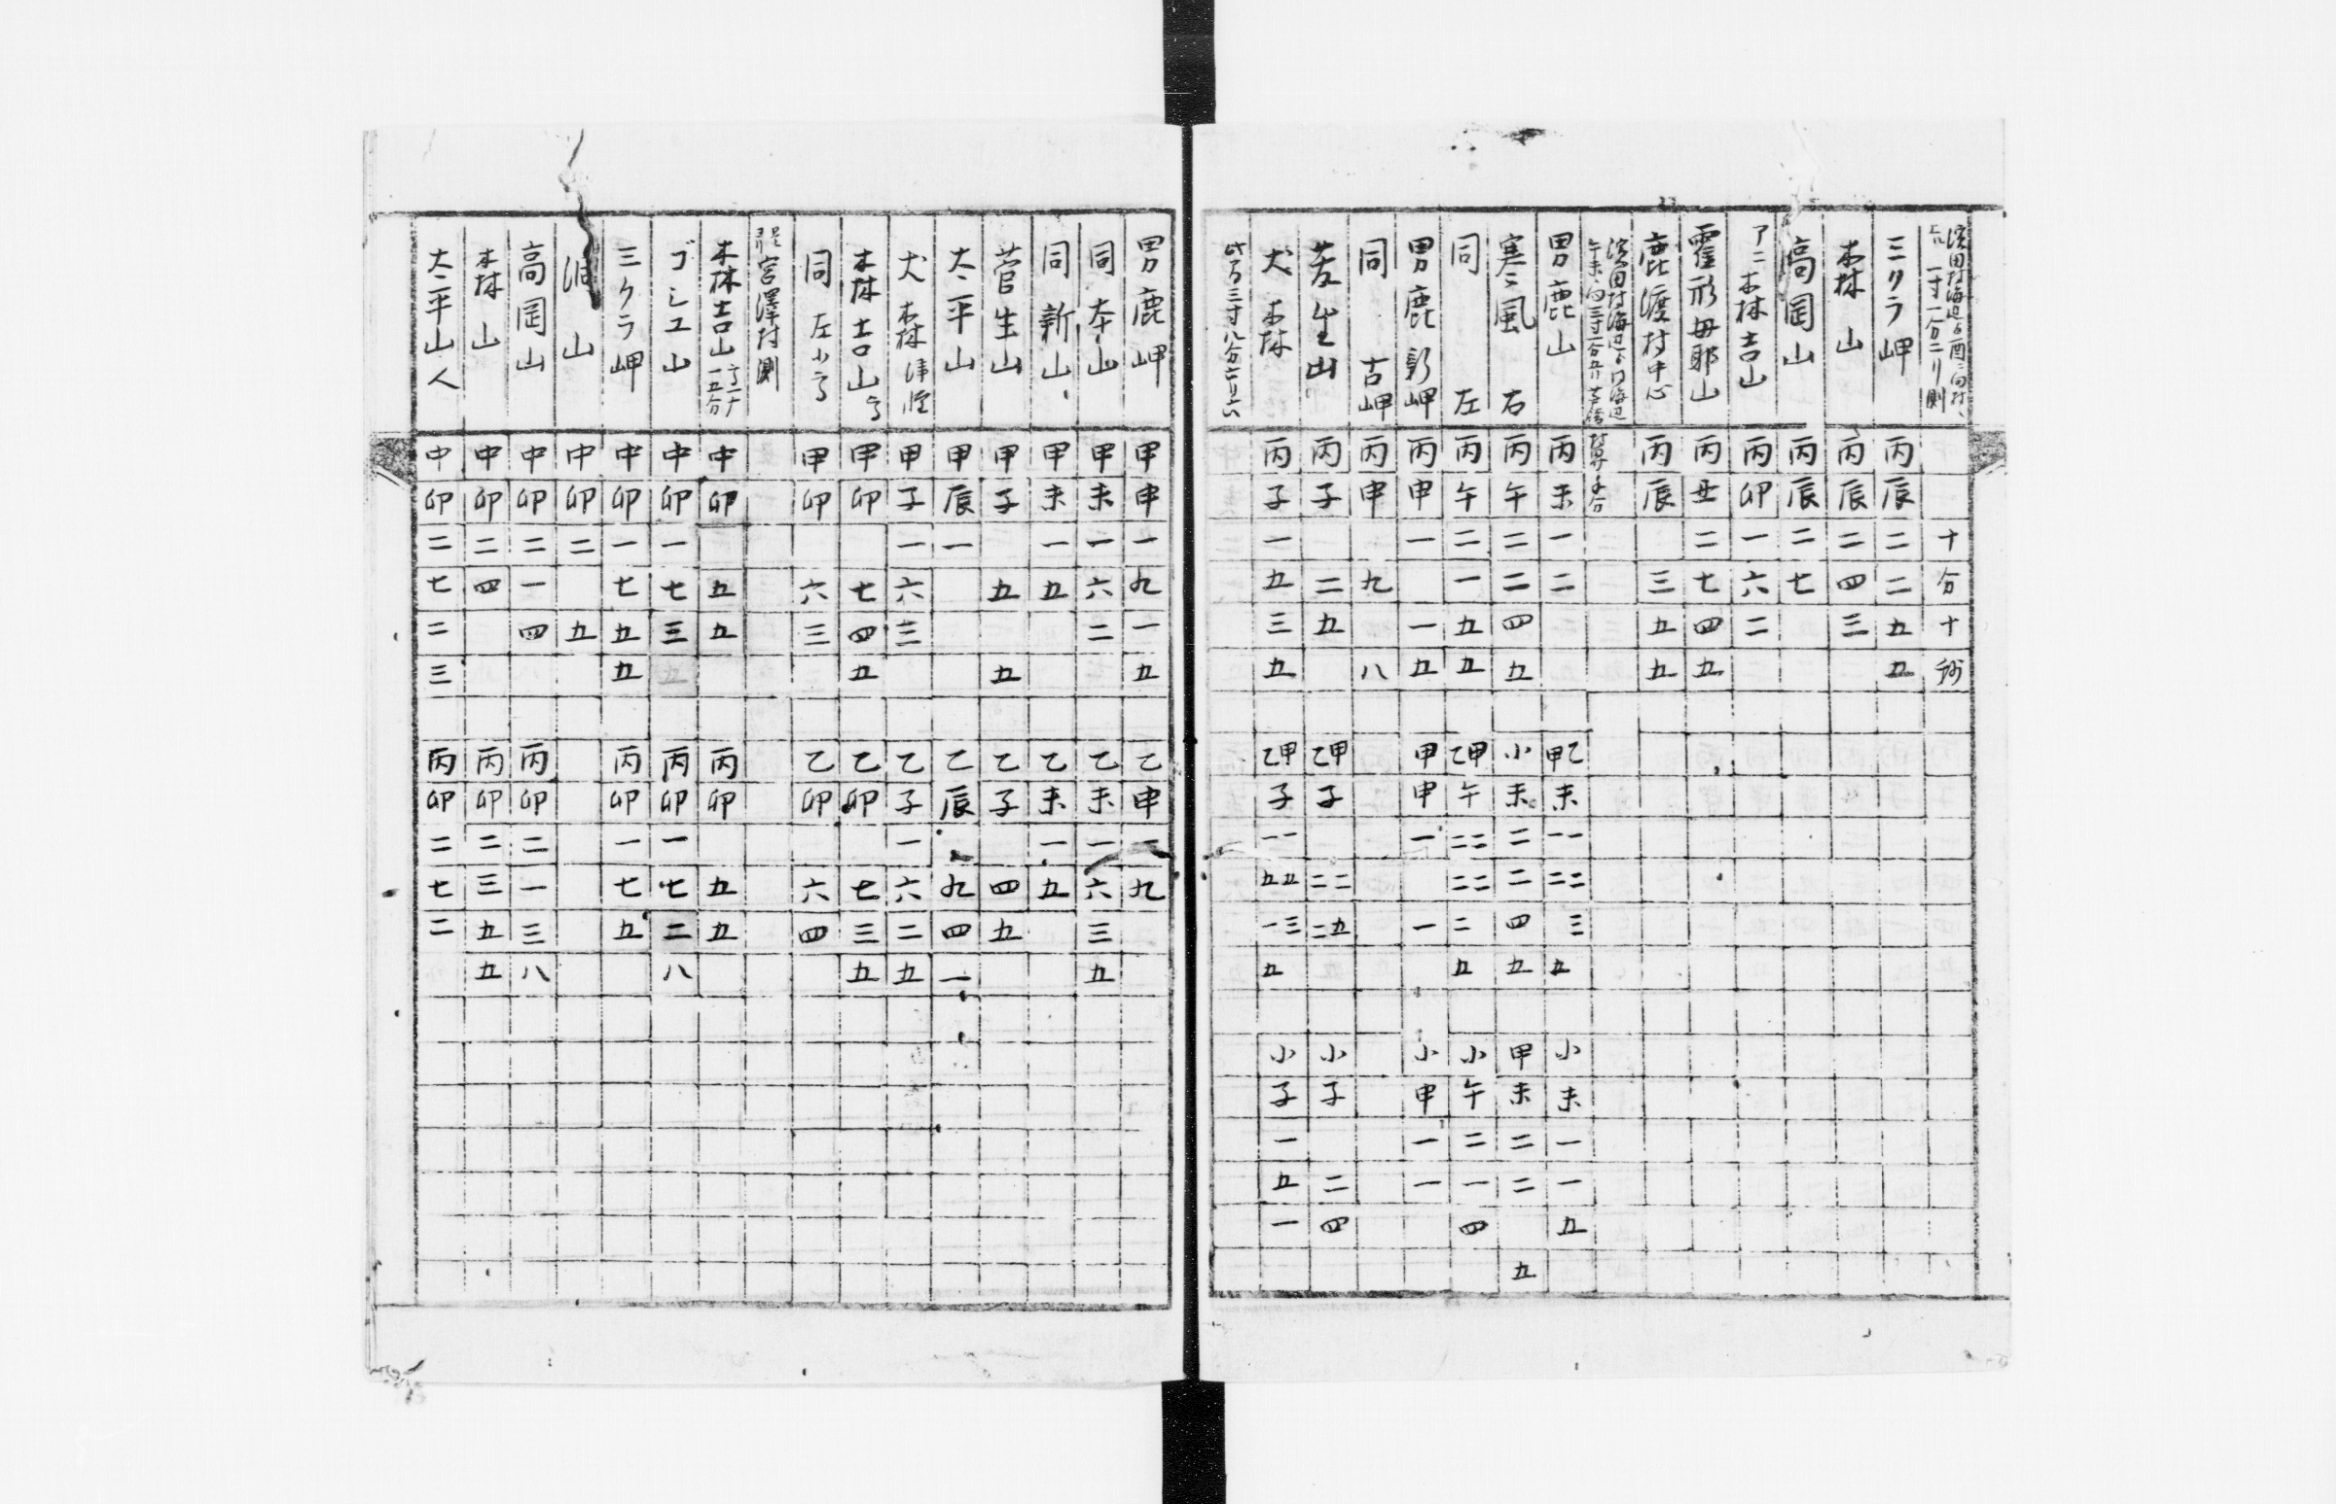 三クラ岬 丙辰二二五五
木林山 丙辰二四三
高岡山 丙辰二七
アニ木林吉山 丙卯一六二
霍形毋耶山 丙丑二七四五
鹿渡村中心 丙辰三五五
男鹿山 丙未一二 甲乙未一一二二三五 小未一一五
寒風 右 丙午二二四五 小未二二四五 甲未二二五
同 左 丙午二一五五 乙甲午二二二二二五 小午二一四
男鹿新岬 丙申一一五 甲申一一 小申一一
同 古岬 丙申九八
丙子二五 乙甲子二二二五 小子二四
犬木林 丙子一五三五 乙甲子一一五五一三五 小子一五一
男鹿岬 甲申一九一五 乙申一九
同本山 甲未一六二 乙未一六三五
同新山 甲未一五 乙未一五
菅生山 甲子五五 乙子四五
太平山 甲辰一 乙辰九四一
犬木林 甲子一六三 乙子一六二五
木林吉山 甲卯七四五 乙卯七三五
同 左 甲卯六三 乙卯六四
宮澤村測
木林吉山 中卯五五 丙卯五五
ゴシユ山 中卯一七三五 丙卯一七二八
三クラ岬 中卯一七五五 丙卯一七五
山 中卯二五
高岡山 中卯二一四 丙卯二一三八
木林山 中卯二四 丙卯二三五五
太平山 中卯二七二三 丙卯二七二